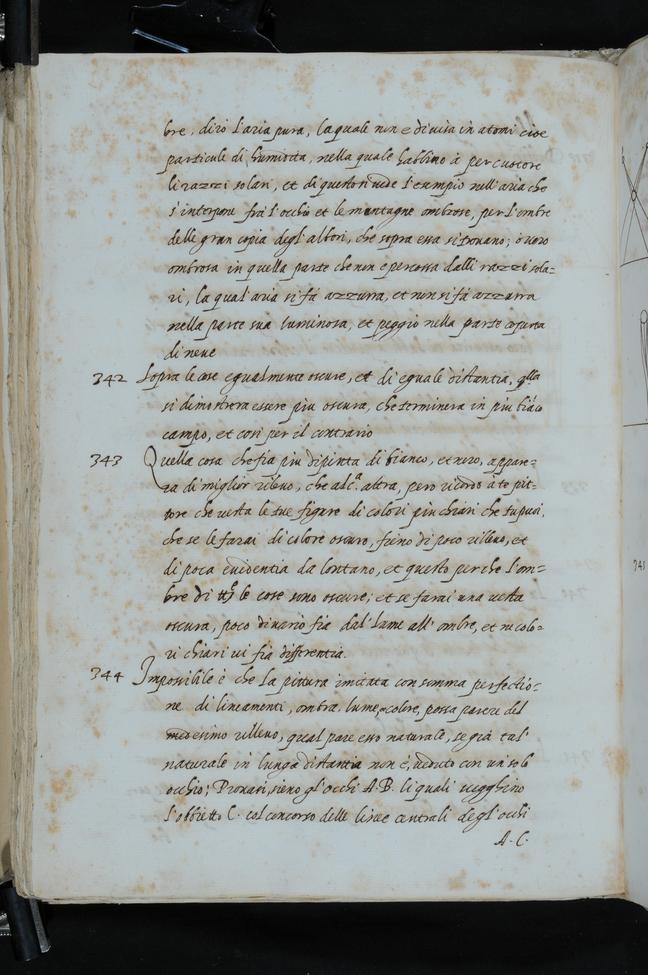 bre, dirò l'aria pura, la quale non e divisa in atomi cioe
particule di humidita, nella quale habbino à percuotere
li razzi solari, et di questo si vede l'esempio nell'aria che
s'interpone frà l'occhio et le montagne ombrose, per l'ombre
delle gran copia degl'alberi, che sopra essa si trovano; ò vero
ombrosa in quella parte che non è percossa dalli razzi sola-
ri, la qual'aria si fà azzurra, et non si fà azzurra
nella parte sua luminosa, et peggio nella parte coperta
di neve
342 Sopra le cose egualmente oscure, et di eguale distantia, qlla
si dimostrera essere piu oscura, che terminera in piu biāco
campo, et cosi per il contrario
343 Quella cosa che fia piu dipinta di bianco, et nero, appare-
ra di miglior rilevo, che alcᵃ altra, pero ricordo à te pit-
tore che vesta le tue figure di colori piu chiari che tu puoi,
che se le farai di colore oscuro, fieno di poco rillevo, et
di poca evidentia da lontano, et questo perche l'om-
bre di tte le cose sono oscure; et se farai una vesta
oscura, poco divario fia dal lume all'ombre, et ne colo-
ri chiari vi fia differentia.
344 Impossibile è che la pittura imitata con somma perfettio-
ne di lineamenti, ombra, lume, colore, possa parere del
medesimo rillevo, qual pare esso naturale, se già tal'
naturale in lunga distantia non è, veduto con un solo
occhio; Provasi, sieno gl'occhi A. B. li quali vegghino
l'obbietto C. col concorso delle linee centrali degl'occhi
A. C.
343